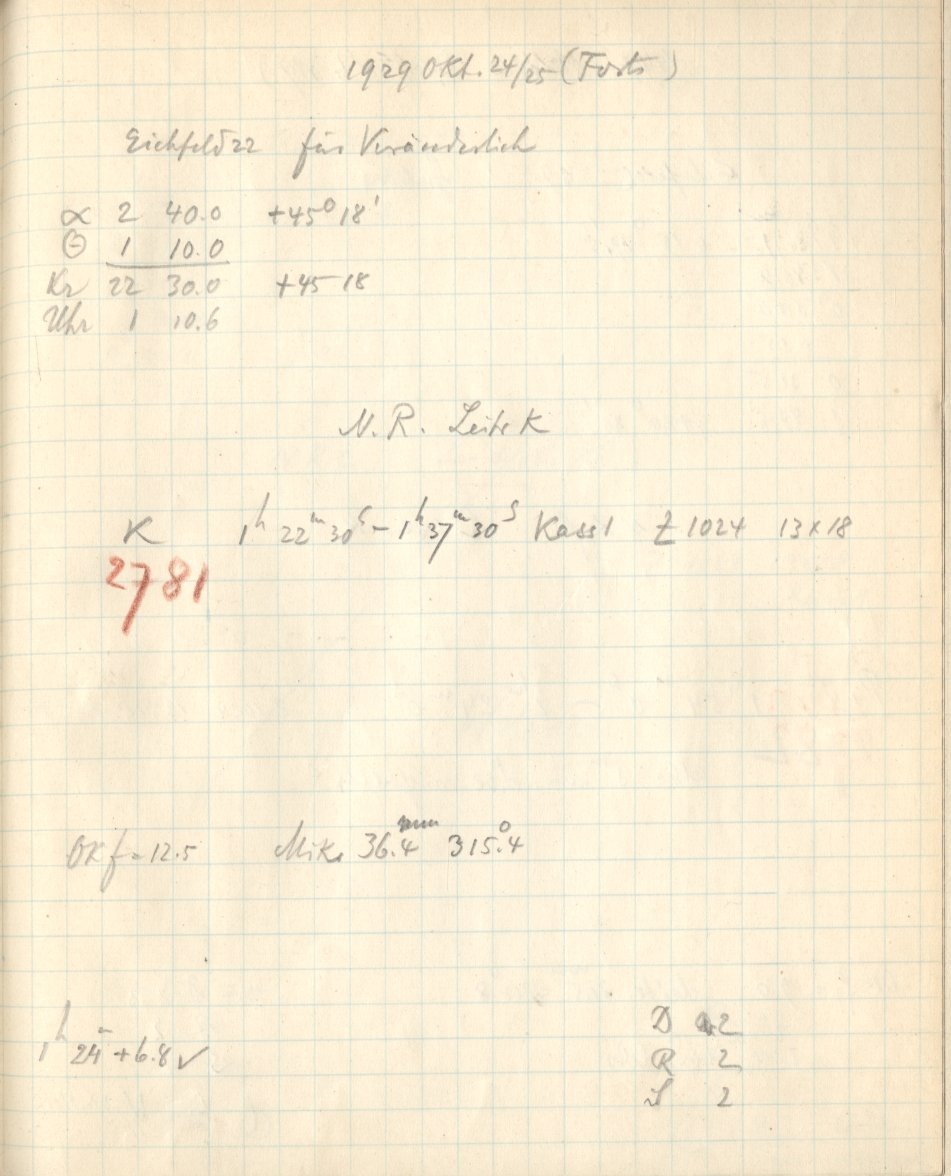 1929 Okt. 24/25 (Forts)
Eichfeld 22 für Veränderlich
α 2 40.0 +45° 18'
Θ 1 10.0
Kr 22 30.0 +45 18
Uhr 1 10.6
N.R. Leitr K
K 1h 22m 30s – 1h 37m 30s Kass 1 Z 1024 13 x 18
2781
OK f = 12.5 Mikr 36.4mm 315°.4
1h 24m +6.8 ✓
D 2
R 2
S 2